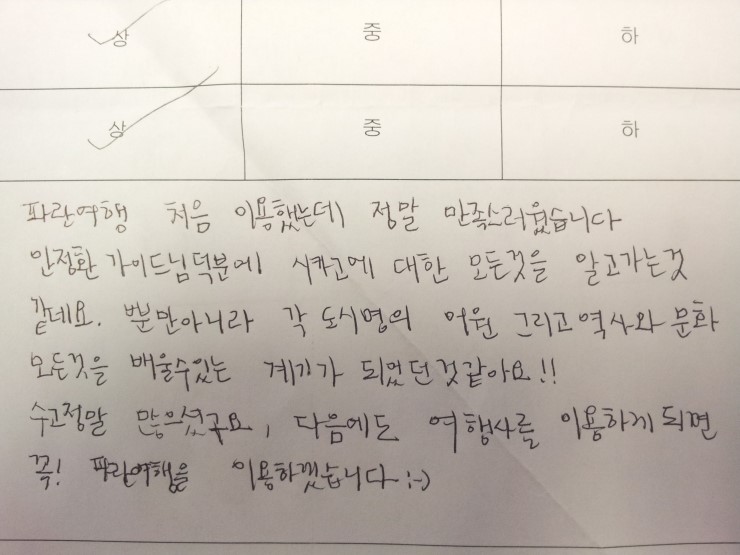 상 중 하
상 중 하
파란여행 처음 이용했는데 정말 만족스러웠습니다
안정환 가이드님덕분에 시카고에 대한 모든것을 알고가는것
같네요. 뿐만아니라 각 도시명의 어원 그리고 역사와 문화
모든것을 배울수있는 계기가 되었던것같아요!!
수고정말 많으셨구요, 다음에도 여행사를 이용하게되면
꼭! 파란여행을 이용하겠습니다 :-)